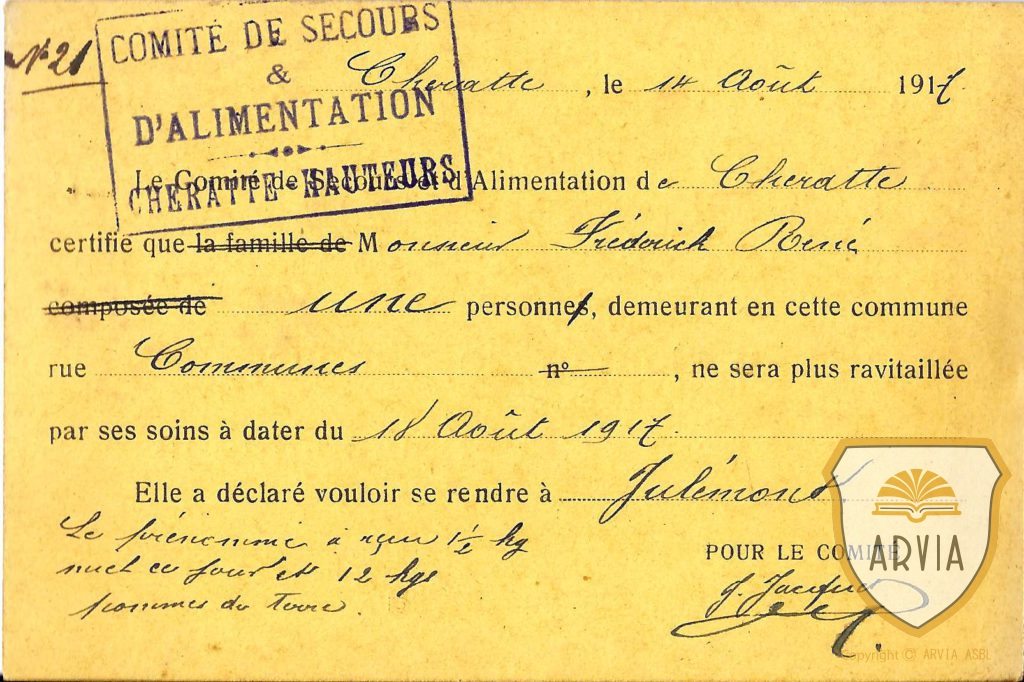 N° 21
COMITÉ DE SECOURS
&
D'ALIMENTATION
CHERATTE-HAUTEURS
Cheratte, le 14 Août 1917
Le Comité de Secours et d'Alimentation de Cheratte
certifie que la famille de Monsieur Fréderick René
composée de une personnes, demeurant en cette commune
rue Communes n°, ne sera plus ravitaillée
par ses soins à dater du 18 Août 1917.
Elle a déclaré vouloir se rendre à Julémont
Le prénommé a reçu 1 1/2 kg
ce jour et 12 kgs
pommes de terre.
POUR LE COMITÉ
ARVIA
Copyright © ARVIA ASBL